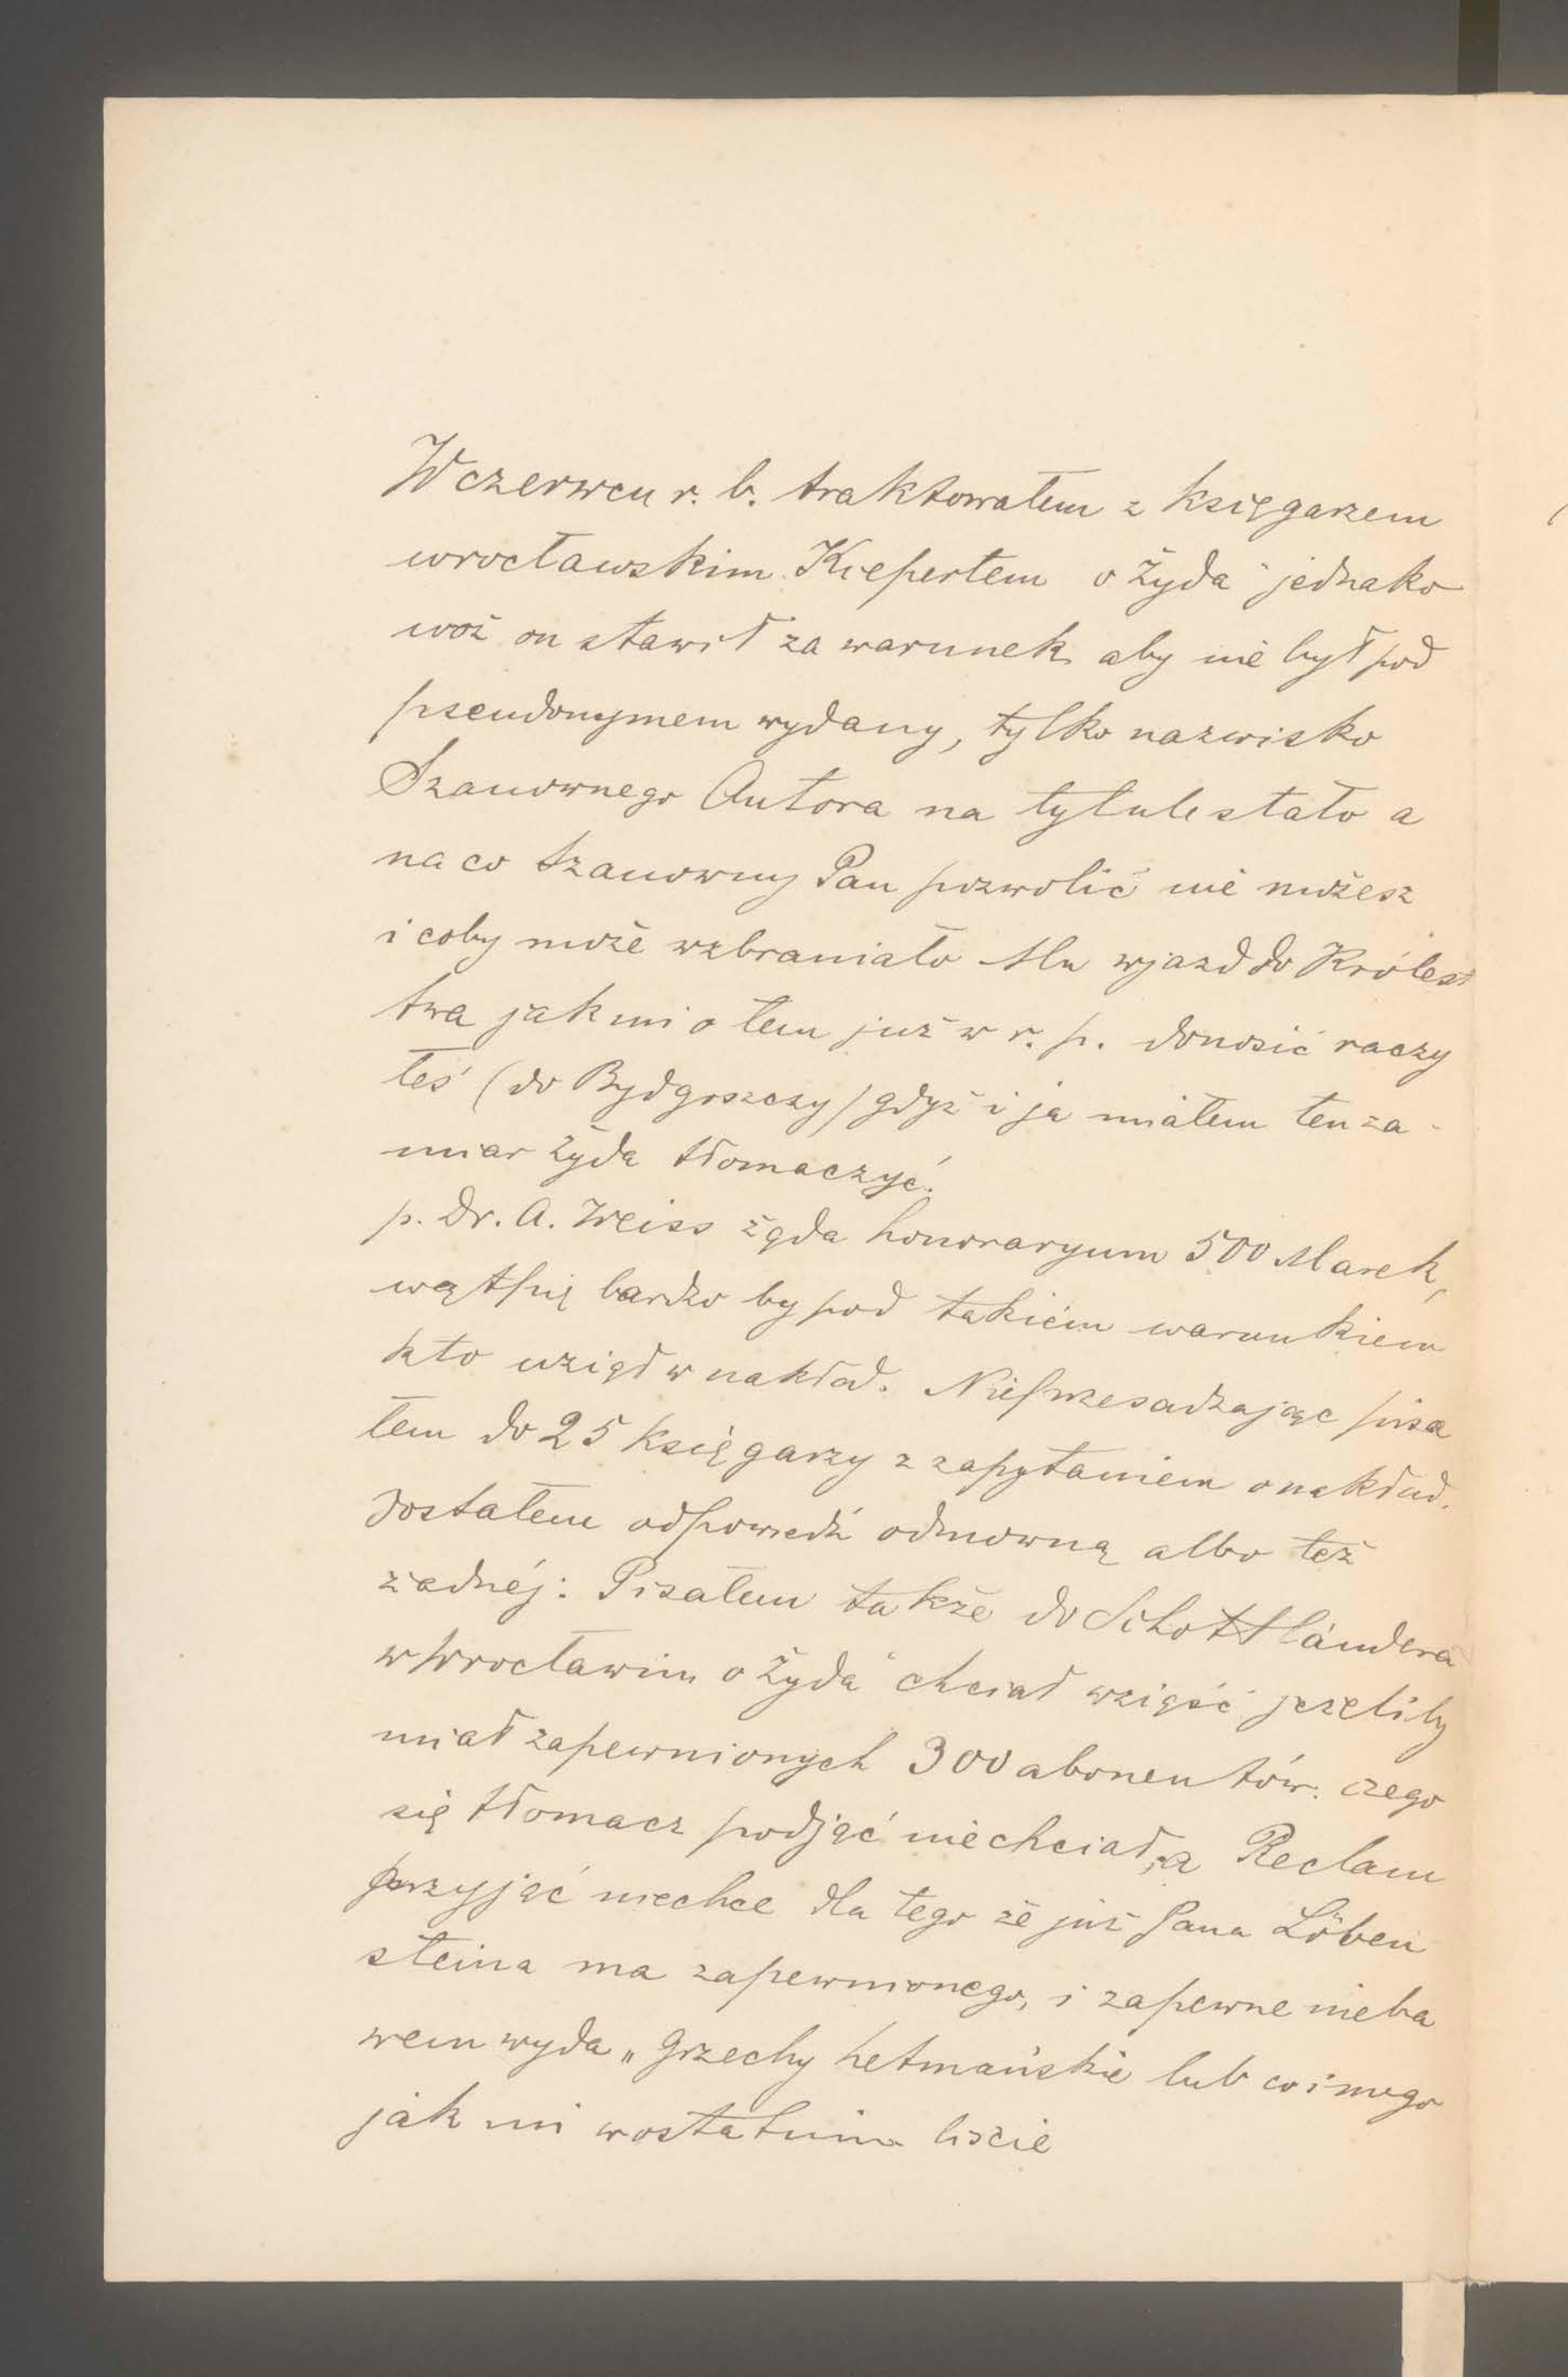 W czerwcu r. b. traktowałem z księgarzem
wrocławskim Kiepertem o Żyda" jednako
woż on stawił za warunek aby nie był pod
pseudonymem wydany, tylko nazwisko
Szanownego Autora na tytule stało a
na co Szanowny Pan pozwolić nie możesz
i coby może wzbraniało Mu wjazd do Królest
twa jak mi o tem już w r. p. donosić raczy
łeś (do Bydgoszczy) gdyż i ja miałem ten za-
miar Żyda tłomaczyć.
p. Dr. A. Weiss żąda honoraryum 500 Marek,
wątpię bardzo by pod takiém warunkiem
kto wziął w nakład. Nieprzesadzając pisa
łem do 25 księgarzy z zapytaniem o nakład.
dostałem odpowiedź odmowną albo też
żadnéj: Pisałem także do Schottländera
w Wrocławiu o Żyda" chciał wziąść jeżeliby
miał zapewnionych 300 abonentów: czego
się tłomacz podjąć niechciał, a Reclam
przyjąć niechce dla tego że już Pana Löben
steina ma zapewnionego, i zapewne nieba
wem wyda „Grzechy hetmańskie lub co innego
jak mi w ostatnim liście